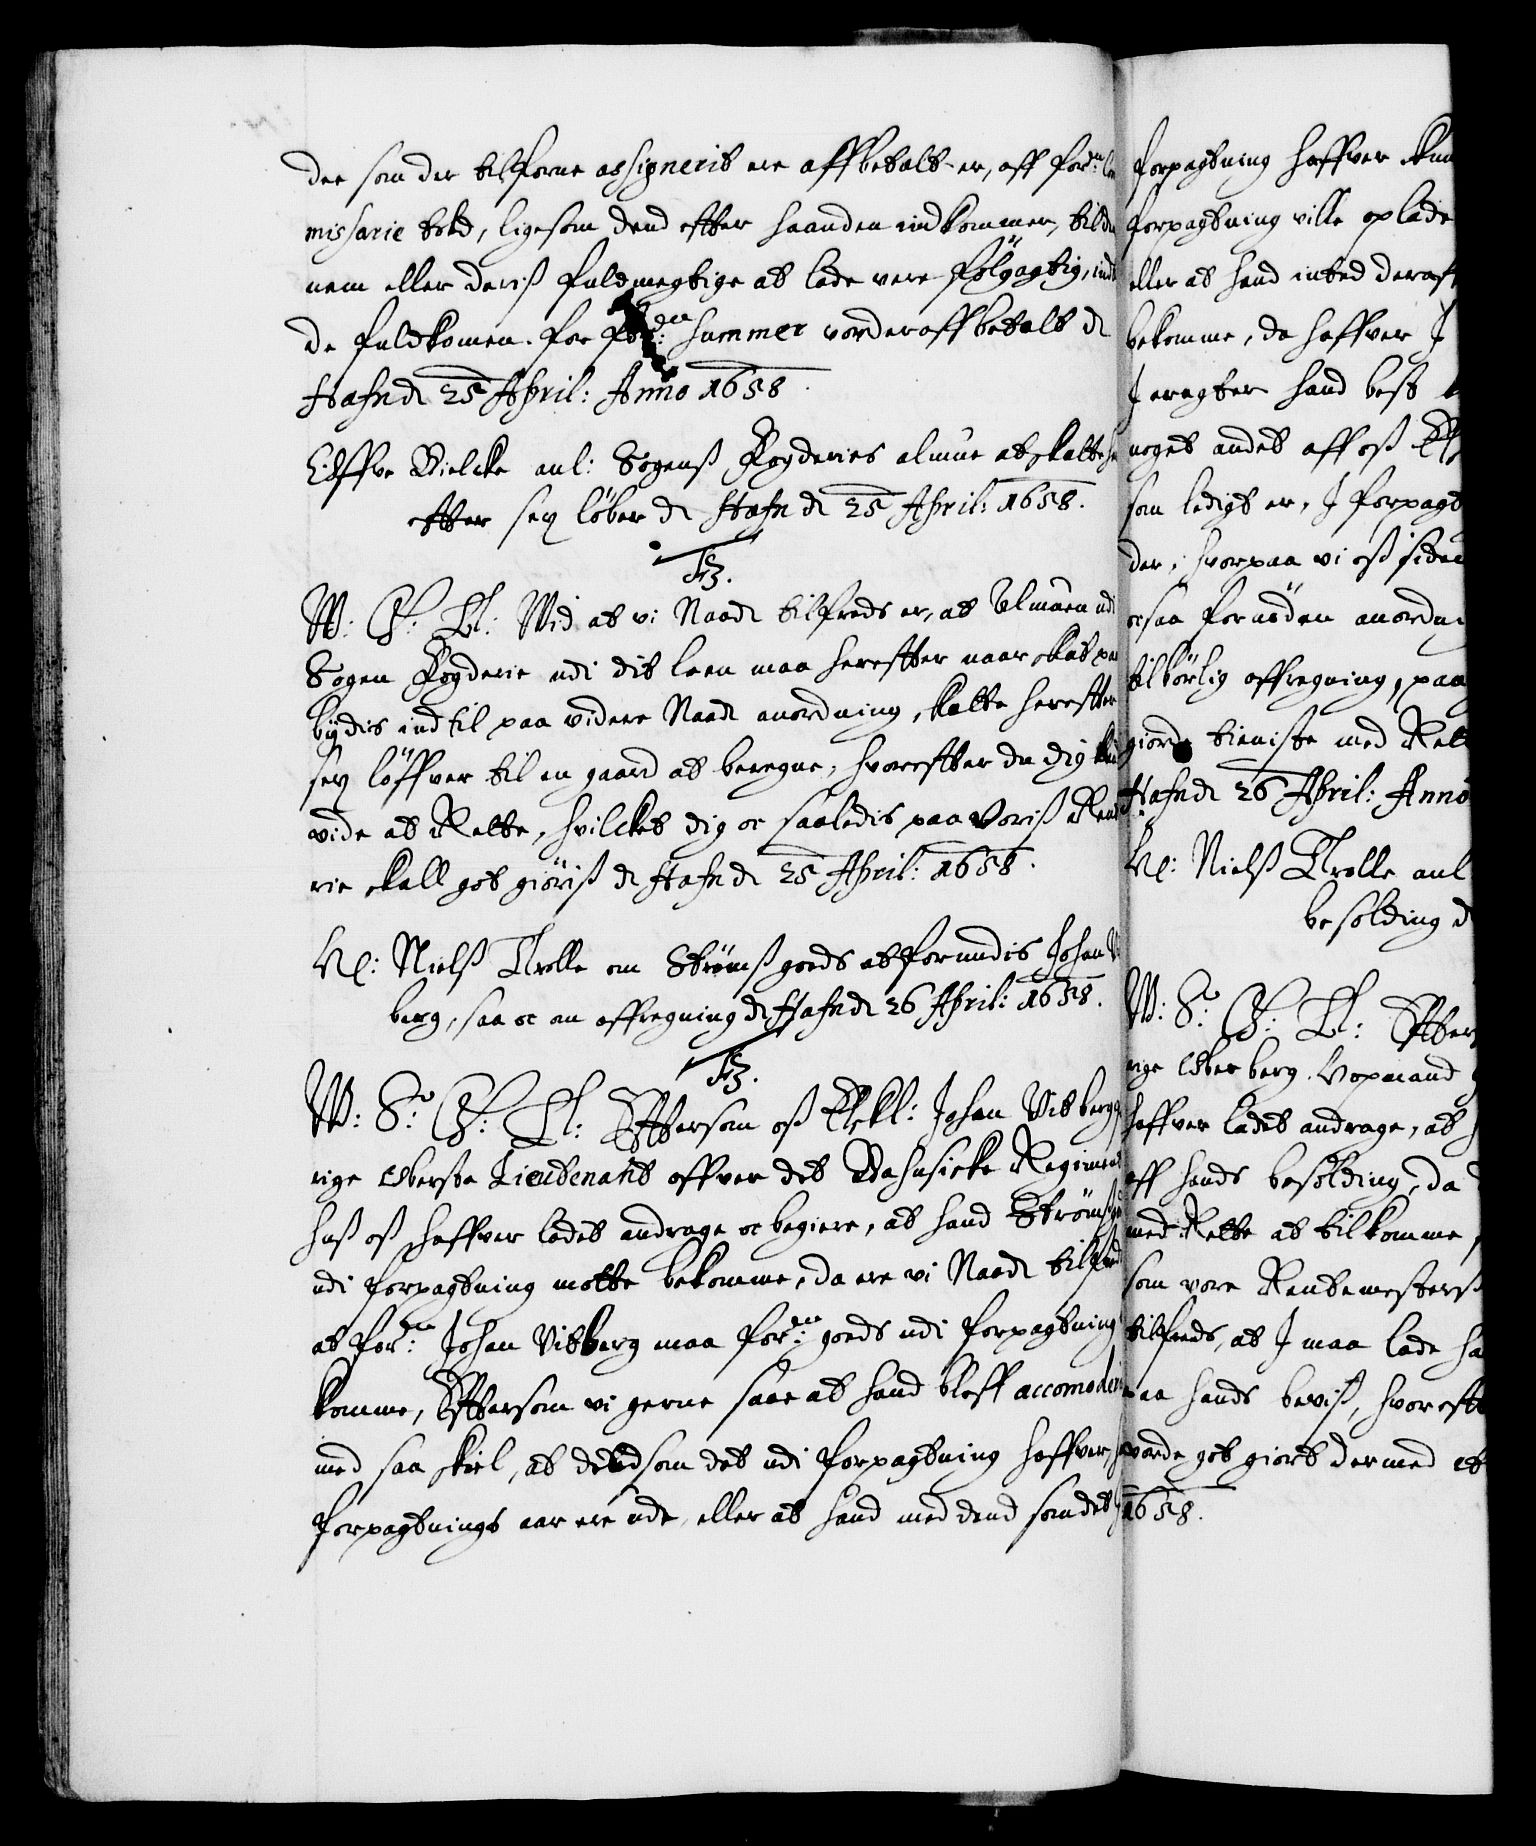 der som der tilforne assignerit ere affbetalt er, aff ford:n
missarie told, ligesom dend efter haanden indkommer, til
nem eller deris fuldmegtige at lade vere følgagtig, ind
de fuldkomen for ford:en summer vorder affbetalt de
Hafn d 25 April: Anno 1658.
Eiffve Bielcke anl: Sogens Fogderies almue at skatte
efter sey løber de Hafn d 25 April: 1658.
F3.
W: G: T: Wid at vi Naadl tilfreds er, at Almuen udi
Sogen Fogderie udi dit leen maa herefter naar skat paa
bydis ind til paa videre Naadl anordning, skatte herefter
sey løffver til en gaard at beregne, hvorefter du dig
vide at Rette, hvilcket dig oc saaledis paa Voris Rent
rie skall got giøris de Hafn d 25 April: 1658.
Ne: Niels Trolle om Strøms goeds at forundis Johan
berg, saa oc om affregning de Hafn d 26 April: 1658.
F3.
W: S: G: T: Eftersom oss Elskl: Johan Vitberg
rige Oberste Lieutenant offver det Bahusiske Regiment
hus oss haffver ladet andrage oc begiere, at hand Strøms
udi forpagtning motte bekomme, da ere vi Naadl tilfred
at ford:en Johan Vitberg maa ford:en goeds udi forpagtning
komme, Eftersom vi gerne saae at hand bleff accomoderit
med saa skiel, at dend som det udi forpagtning haffver,
forpagtnings aar ere ude, eller at hand med dend som det
forpagtning haffver kun
forpagtning ville oplade
eller at hand inted deraff
bekomme, da haffver I
I eragter hand best
noget andet aff oss
som ledigt er, I forpagt
der, hvorpaa vi oss siden
ocsaa fornøden anordning
tilbørlig affregning, paa
giorde tieniste med Rett
Hafn d 26 April: Anno
Ne: Niels Trolle anl
besolding d
W: S: G: T: Efter
rige Otter berg. Vopmand
haffver ladet andrage, at
aff hands besolding, da
med Rette at tilkomme,
som vore Rentemesters
tilfreds, at I maa lade ha
paa hands bevis, hvoreft
vorde got giort dermed
1658.